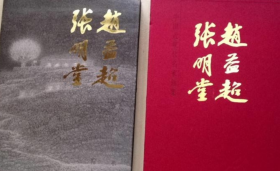 趙益超
張明堂
趙益超
張明堂